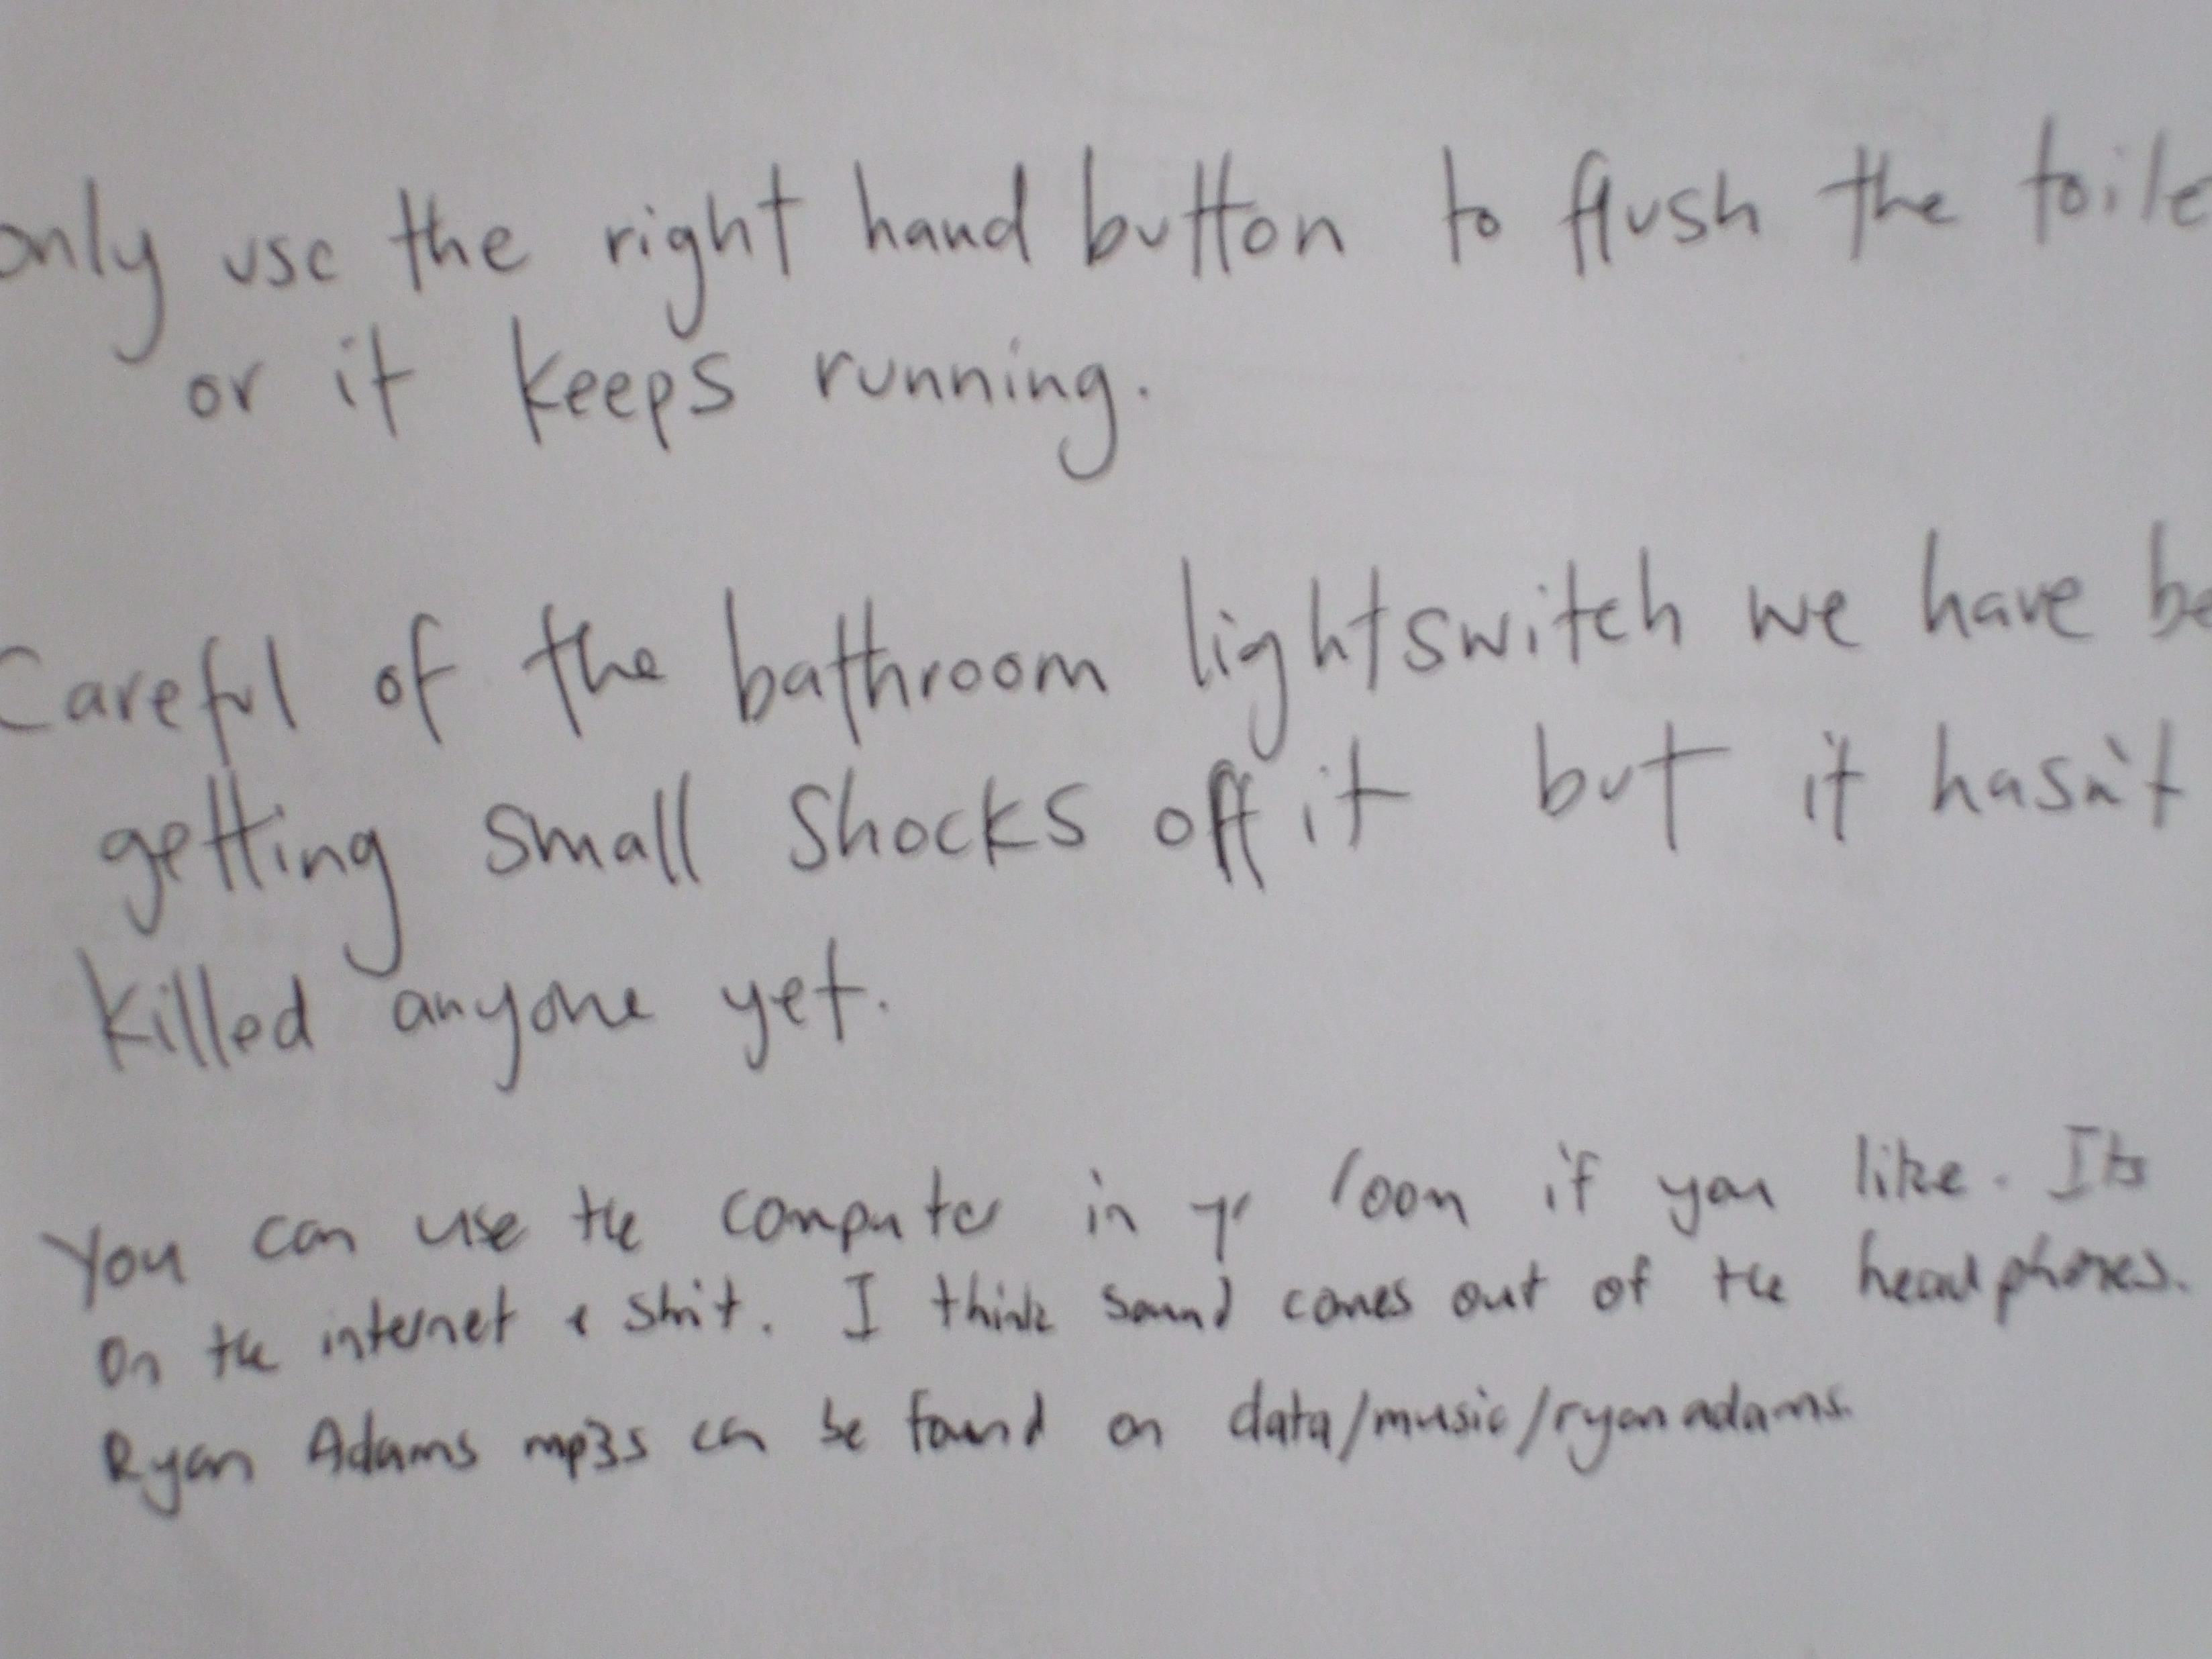 only use the right hand button to flush the toile
or it keeps running.
Careful of the bathroom lightswitch we have be
getting small shocks off it but it hasn't
killed anyone yet.
You can use the computer in yr room if you like. Its
on the internet & shit. I think sound comes out of the headphones.
Ryan Adams mp3s can be found on data/music/ryanadams.